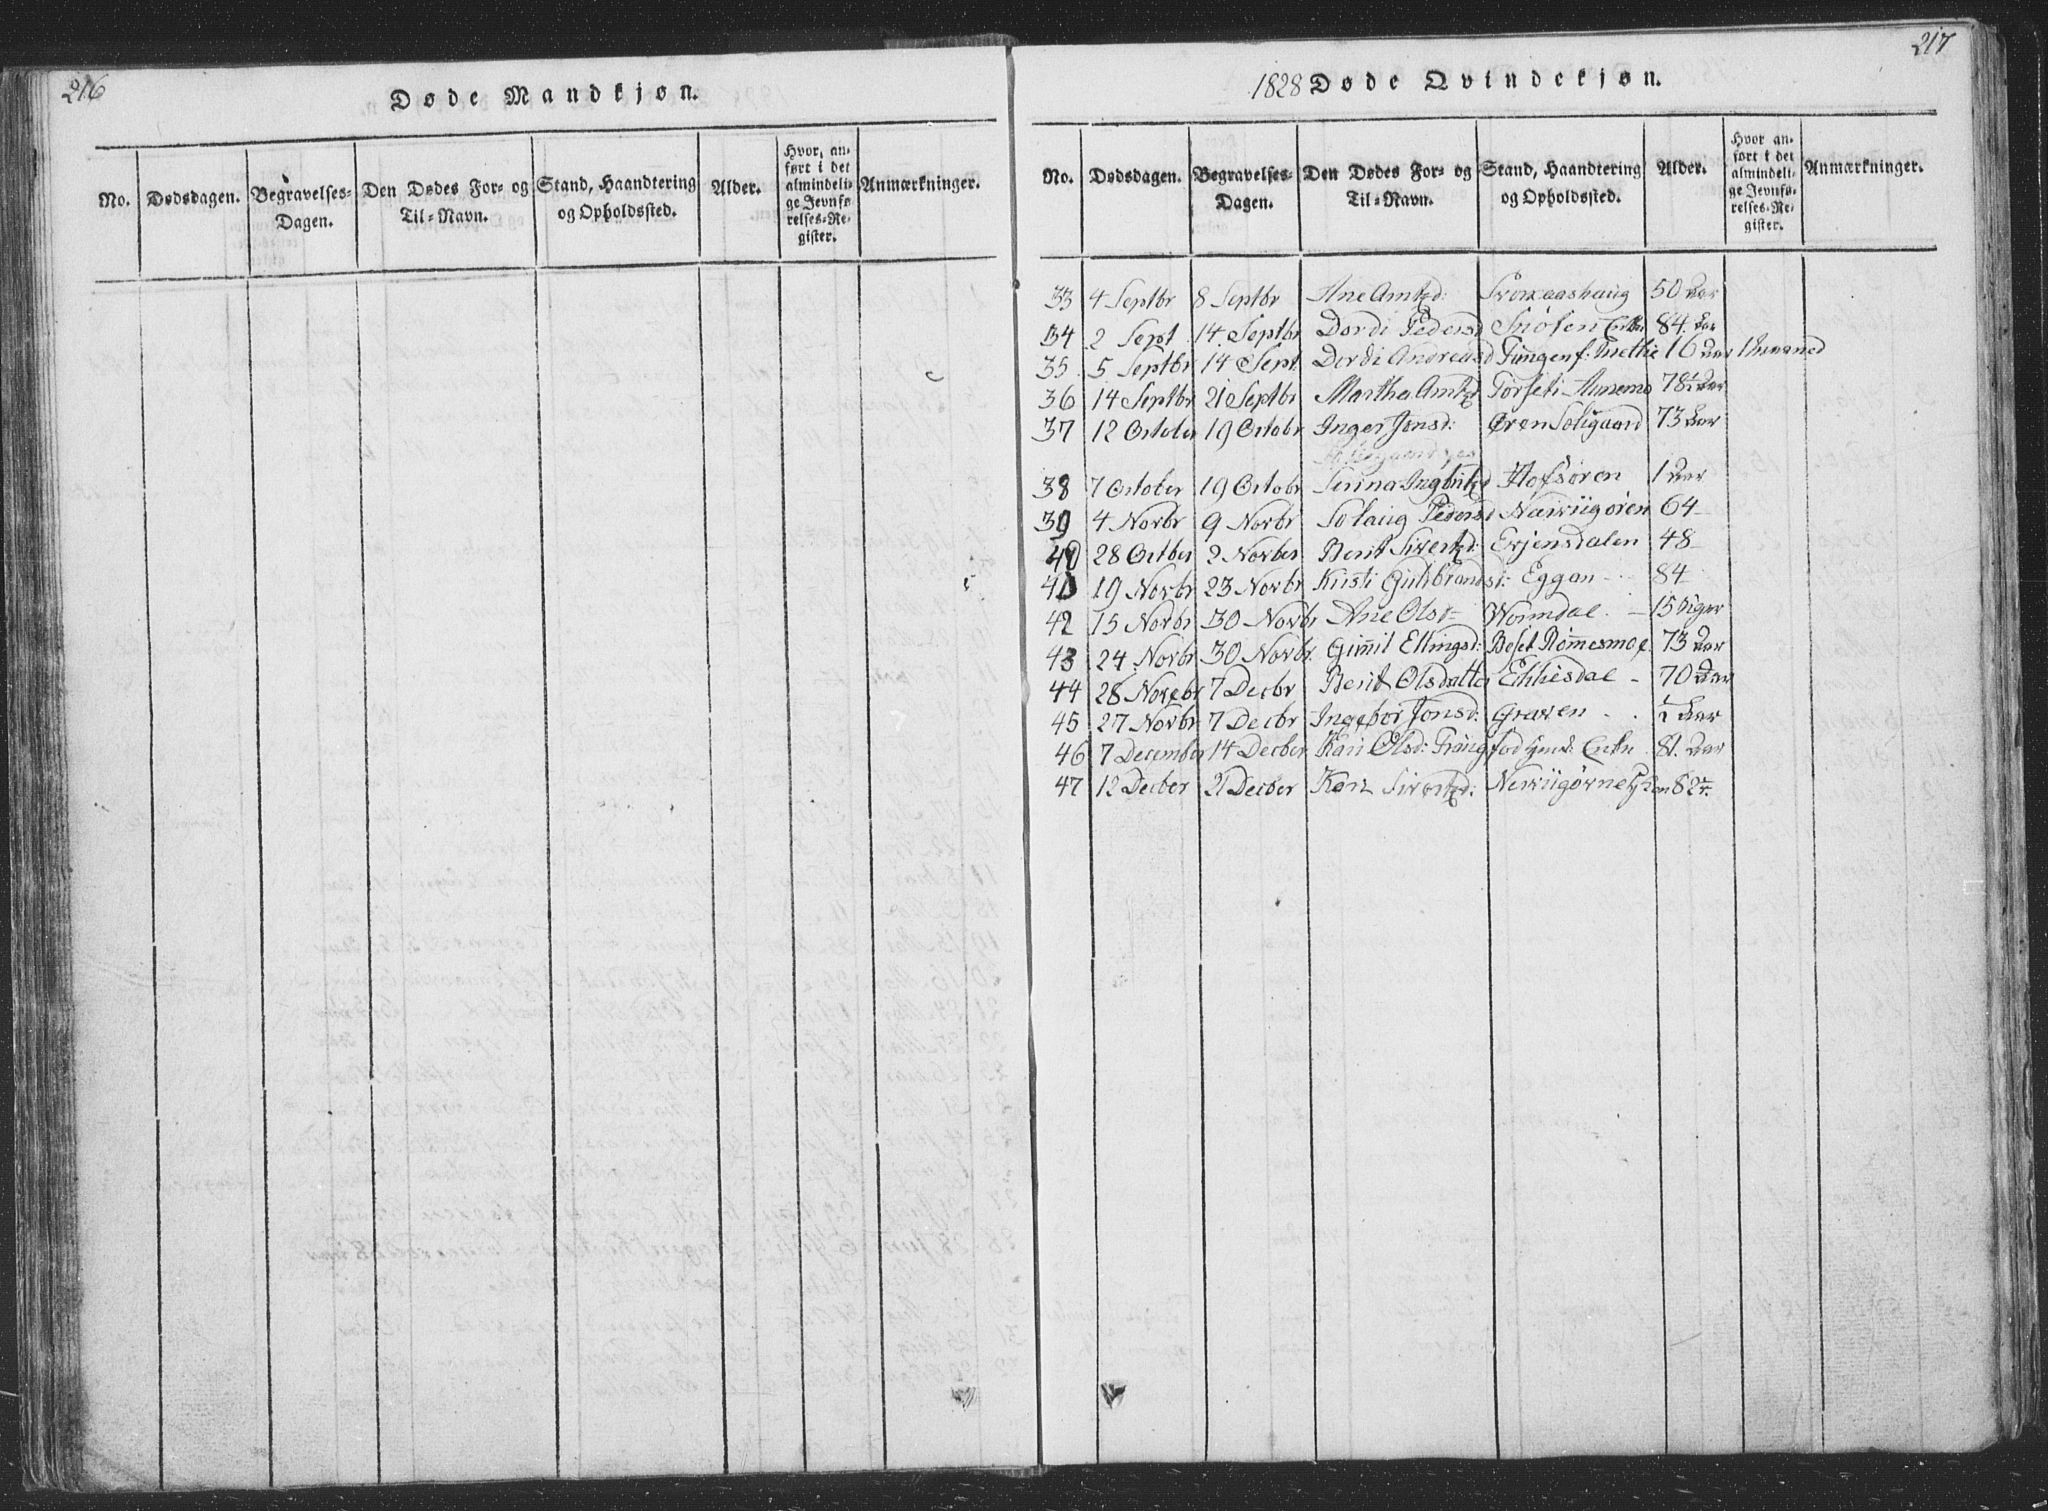 216
Døde Mandkjøn.
No. Dødsdagen. Begravelses-Dagen. Den Dødes For- og Til-Navn. Stand, Haandtering og Opholdssted. Alder. Hvor, anført i det almindelige Jevnførelses-Register. Anmærkninger.
217
1828 Døde Qvindekjøn.
No. Dødsdagen. Begravelses-Dagen. Den Dødes For- og Til-Navn. Stand, Haandtering og Opholdssted. Alder. Hvor anført i det almindelige Jevnførelses-Register. Anmærkninger.
33 4 Septbr 8 Septbr Ane 50 Aar
34 2 Sept 14 Septbr Dordi Pedersd Snølen Enke 84 Aar
35 5 Septbr 14 Sept Dordi Andreasd 16 Aar 1 Maaned
36 14 Septbr 21 Septbr Martha 78½ Aar
37 12 October 19 Octobr Inger Jonsd: Øren Soligaard 73 Aar
38 7 October 19 Octobr Serina Hofsøren 1 Aar
39 4 Novbr 9 Novbr Solaug Pedersd 64
40 28 Octber 2 Novber Berit Sivertsd: Evjensdalen 48
41 19 Novbr 23 Novbr Kirsti Guldbrandsd: Eggan 84
42 15 Novbr 30 Novbr Ane Olsd Wormdal 15 Uger
43 24 Novbr 30 Novbr Gunnil Ellingsd: 73 Aar
44 28 Novebr 7 Decbr Berit Olsdatter 70 Aar
45 27 Novbr 7 Decbr Ingebor Jonsd: Graven ½ Aar
46 7 December 14 Decber Kari Olsd: Enke 81. Aar
47 12 Decber 21 Decber Kari Sivertsd: 82